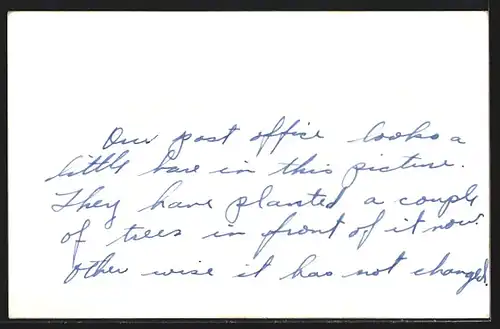 Our post office looks a
little bare in this picture.
They have planted a couple
of trees in front of it now.
Other wise it has not changed.